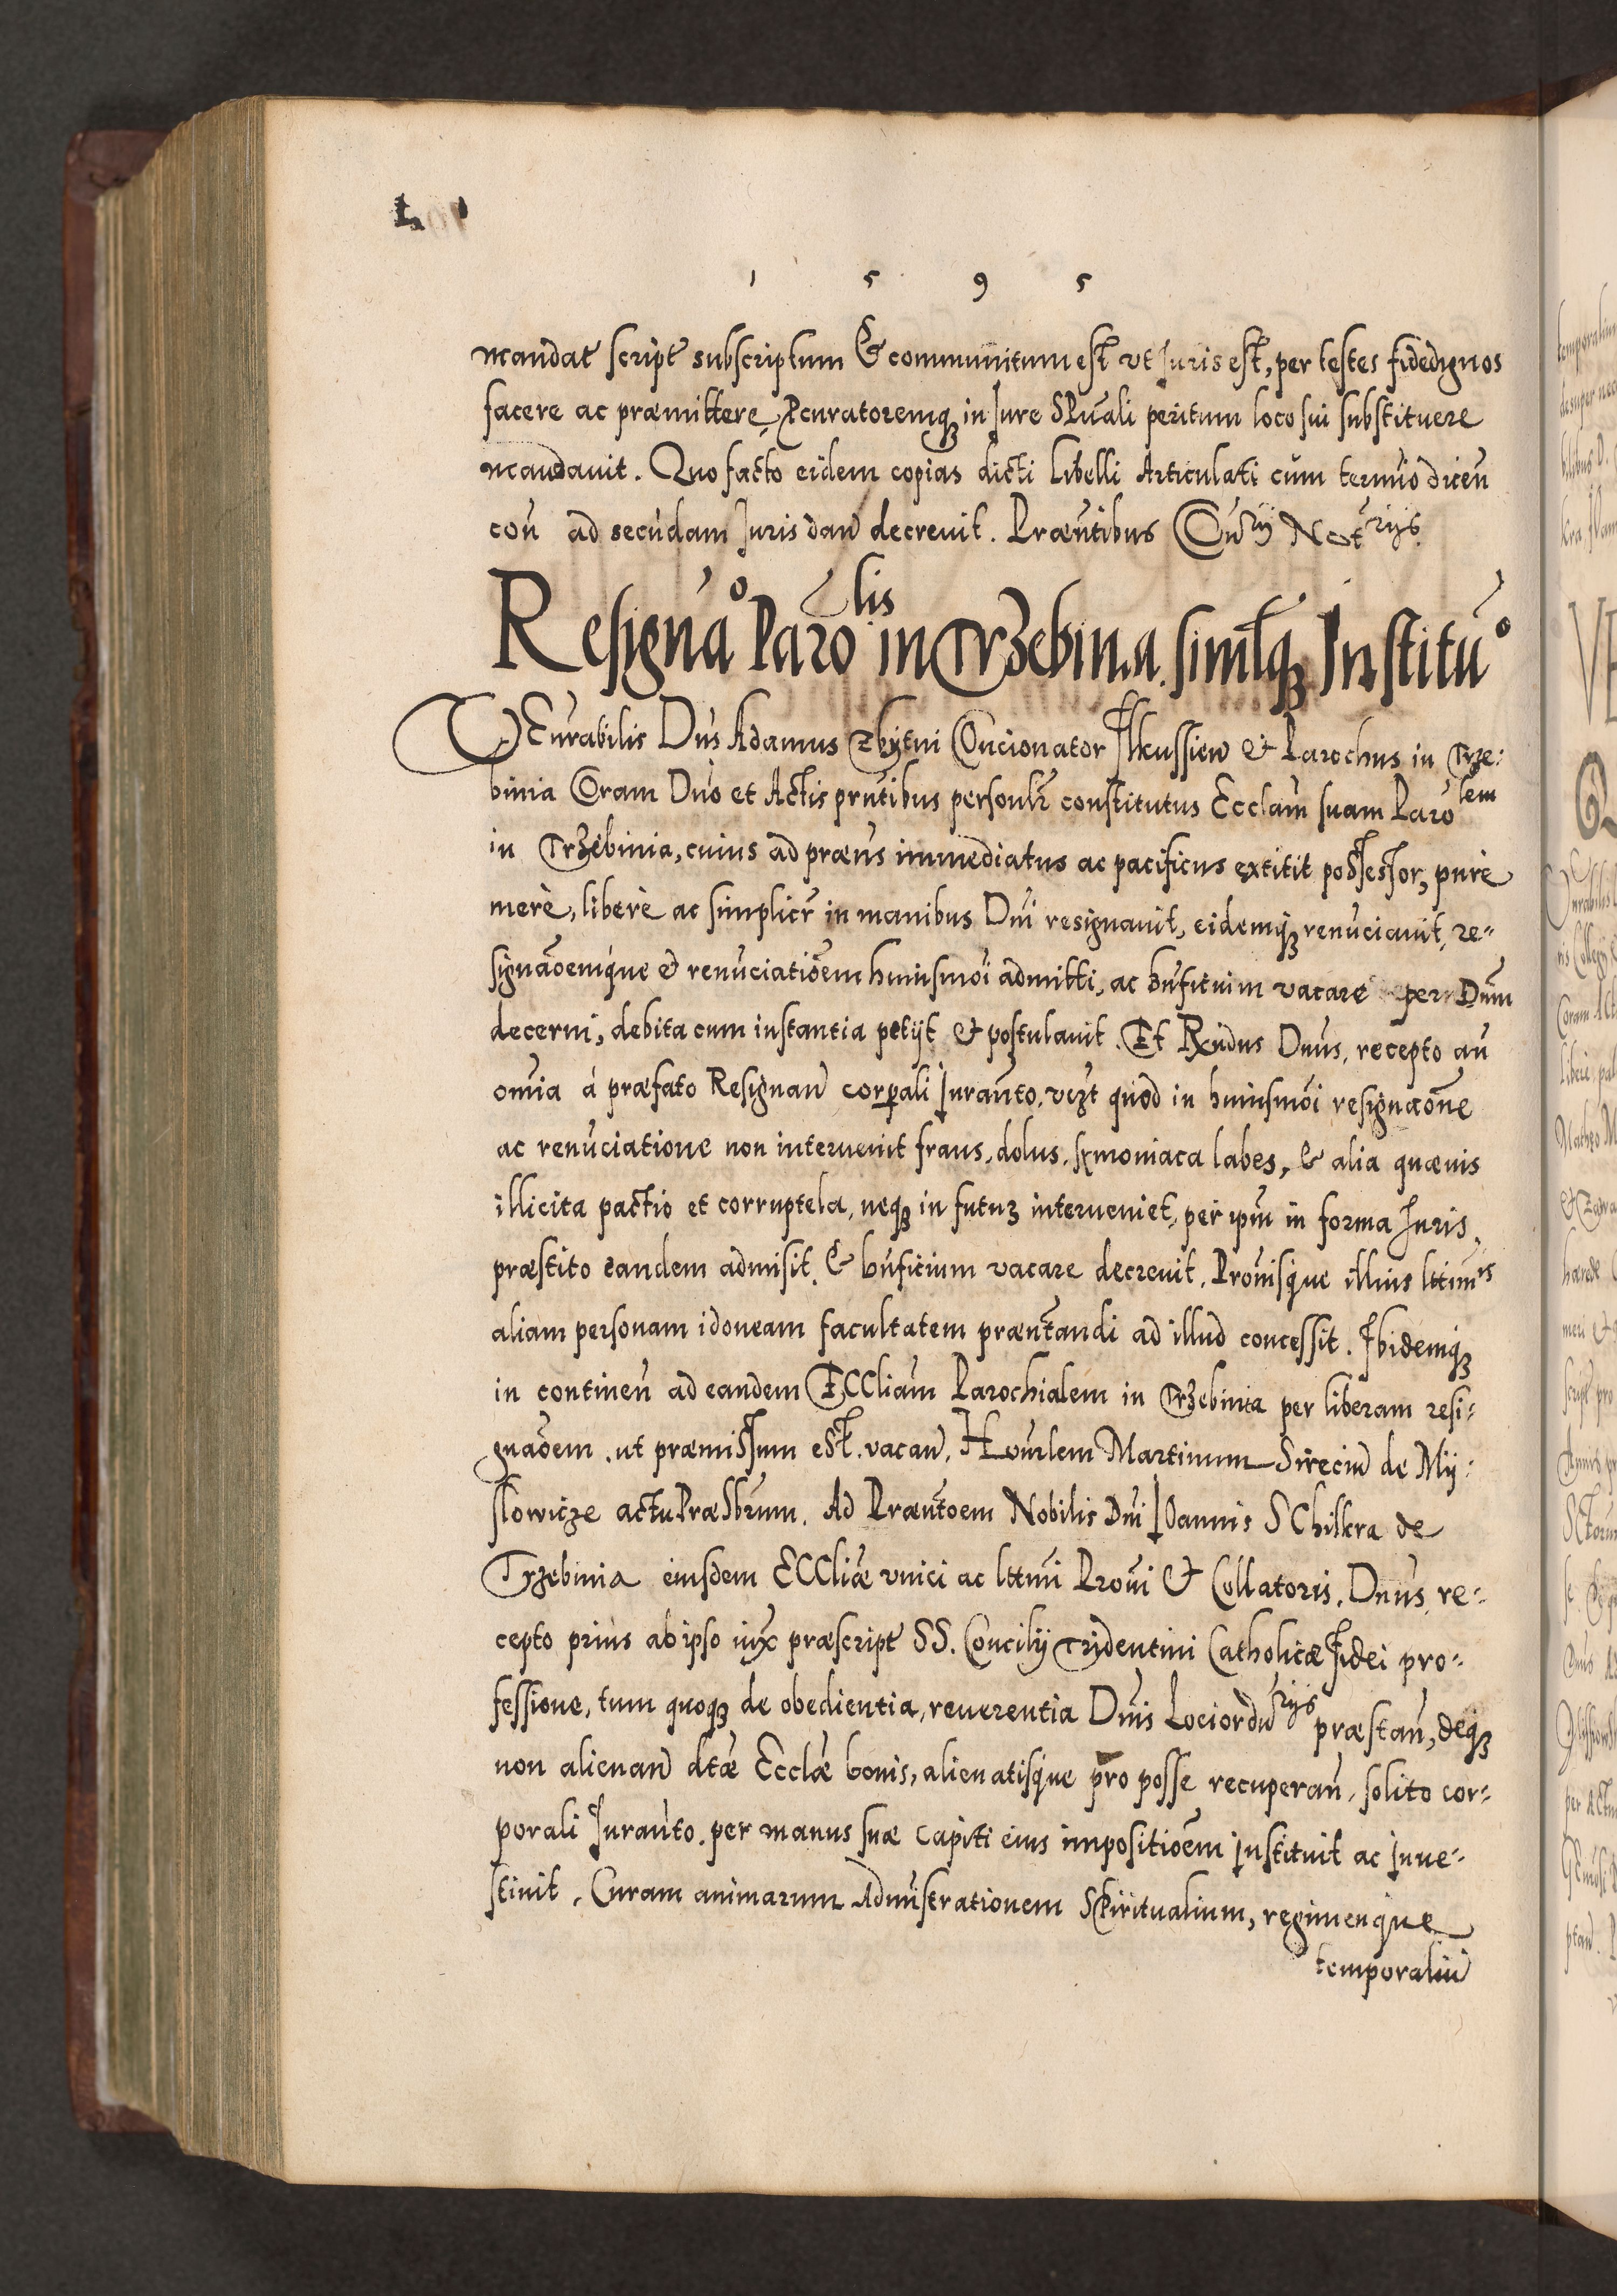 1 5 9 5
mandat script subscriptum & communitum est ut Juris est, per testes fidedignos
facere ac præmittere, Pcuratoremq in Jure SPuali peritum loco sui substituere
mandauit. Quo facto eidem copias dicti Libelli Articulati cum termīo dicen̄
con̄ ad secūdam Juris dan̄ decreuit. Præntibus Cur̄ Notrijs.
Resignāo Parōlis in Trzebinia. simłq Institūo
VEnrabilis Dn̄s Adamus Zbytni Concionator Ilkussien̄ & Parochus in Trze:
binia Coram Dn̄o et Actis pn̄tibus personlr constitutus Ecclām suam Parōlem
in Trzebinia, cuius ad præns immediatus ac pacificus extitit possessor, purè
merè, liberè ac simplicr̄ in manibus Dn̄i resignauit, eidemq renūciauit, re-
signāoemque & renūciatiōem huiusmoī admitti, ac bn̄ficium vacare per Dn̄m
decerni, debita cum instantia petijt & postulauit. Et Rn̄dus Dn̄us, recepto an̄
omīa à præfato Resignan̄ corpali Juranto. vizt quod in huiusmoī resignāone
ac renūciatione non interuenit fraus, dolus, symoniaca labes, & alia quæuis
illicita pactio et corruptela, neq in futuz interueniet, per ipm̄ in forma Juris,
præstito eandem admisit, & bn̄ficium vacare decreuit. Pronisque illius lttimis
aliam personam idoneam facultatem præntandi ad illud concessit. Ibidemq
in continen̄ ad eandem ECCliam Parochialem in Trzebinia per liberam resi-
gnaōem, ut præmissum est, vacan̄. Honrlem Martinum Sireciu de Mij:
slowicze actu Præsbrum. Ad Præntoem Nobilis Dn̄i JOannis SChillera de
Trzebinia eiusdem ECCliæ vnici ac lttmi Proni & Collatoris. Dn̄us, re-
cepto prius ab ipso iux præscript SS. Concilij Tridentini Catholicæ Fidei pro-
fessione, tum quoq de obedientia, reuerentia Dn̄is Lociordūrijs præstan̄, deq
non alienan̄ dtæ Ecclæ bonis, alienatisque pro posse recuperan̄, solito cor-
porali Juranto. per manus suæ capiti eius impositiōem Instituit ac Inue-
stiuit. Curam animarum Admīstrationem SPirítualium, regimenque
temporaliū